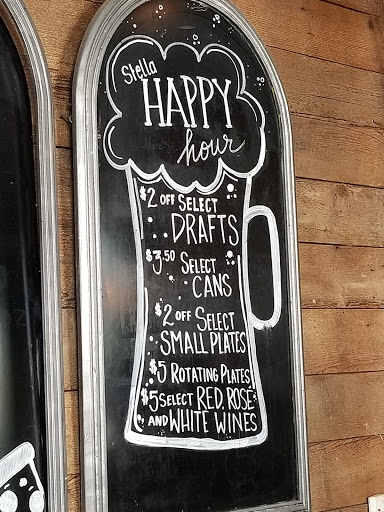 Stella
HAPPY
hour
$2 OFF SELECT
DRAFTS
$3.50 SELECT
CANS
$2 OFF SELECT
SMALL PLATES
$5 ROTATING PLATES
$5 SELECT RED, ROSE
AND WHITE WINES